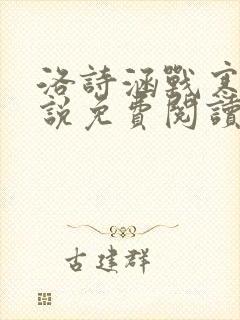 洛詩涵戰寒
說免費閱讀
古建群